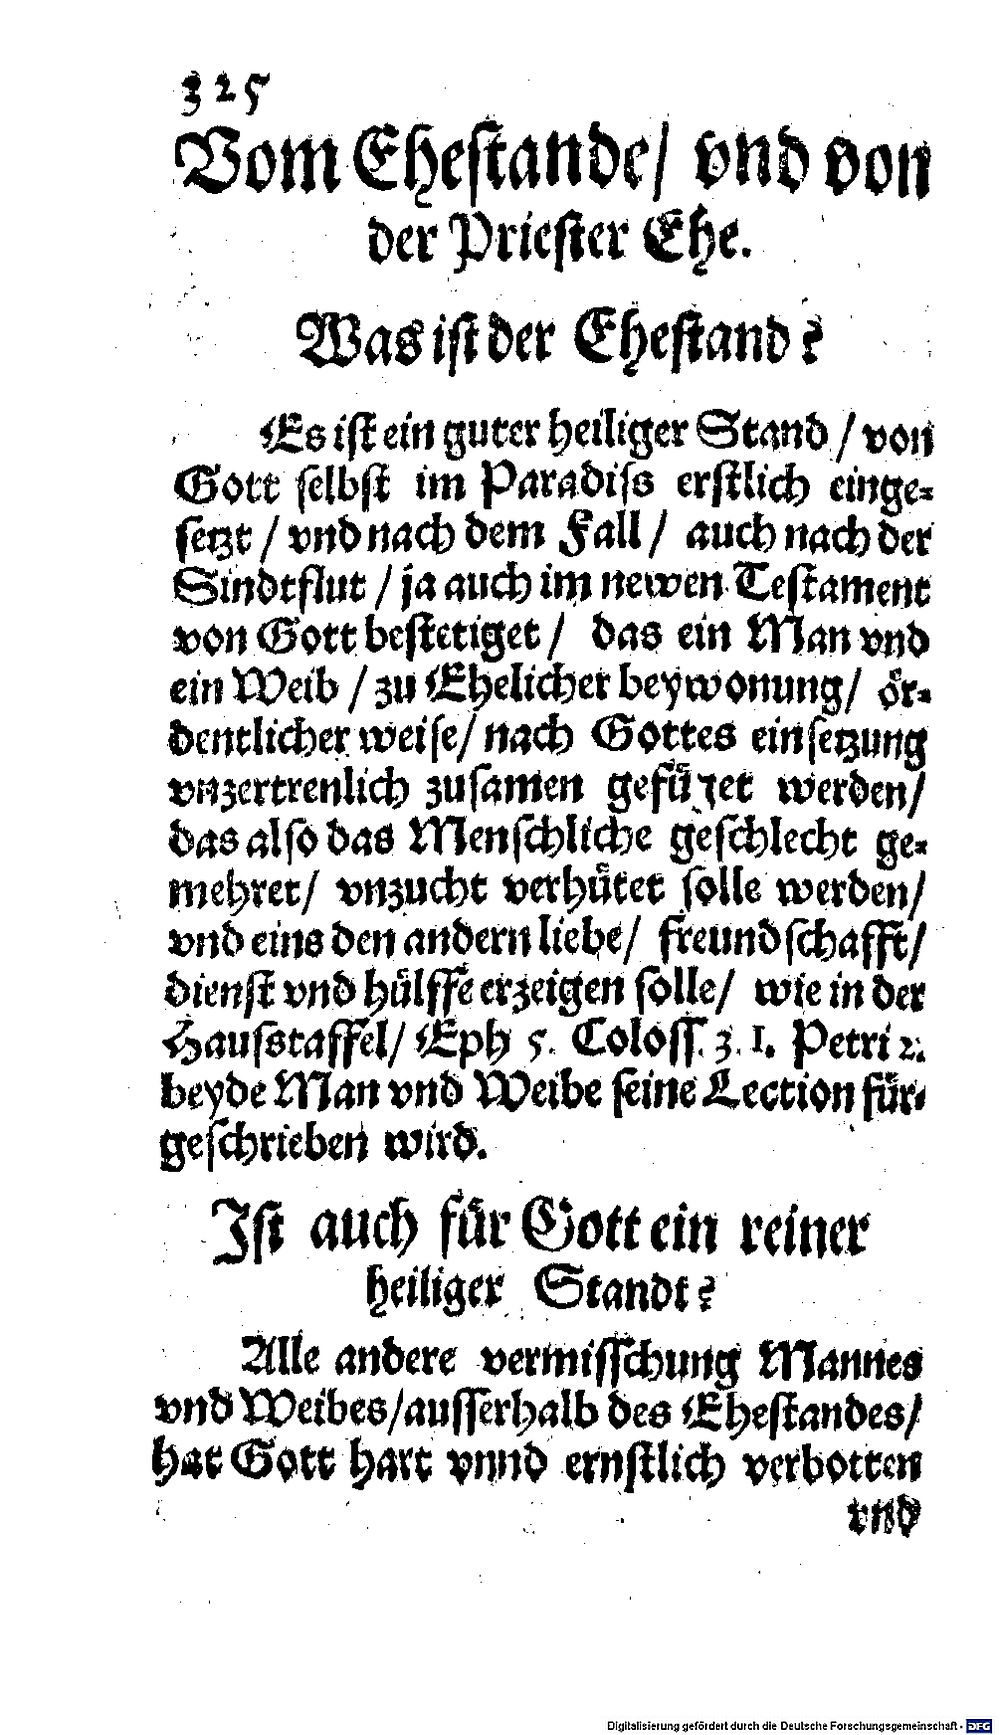 325
Vom Eheſtande/ vnd von
der Prieſter Ehe.
Was iſt der Eheſtand?
Es iſt ein guter heiliger Stand / von
Gott ſelbſt im Paradiſs erſtlich einge⸗
ſetzt / vnd nach dem Fall / auch nach der
Sindtflut / ja auch im newen Teſtament
von Gott beſtetiget / das ein Man vnd
ein Weib / zu Ehelicher beywonung/ oͤr⸗
dentlicher weiſe/ nach Gottes einſetzung
vnzertrenlich zuſamen gefuͤget werden/
das alſo das Menſchliche geſchlecht ge⸗
mehret/ vnzucht verhuͤtet ſolle werden/
vnd eins den andern liebe/ freundſchafft/
dienſt vnd huͤlffe erzeigen ſolle/ wie in der
Hauſstaffel/ Eph 5. Coloſſ. 3. 1. Petri 2.
beyde Man vnd Weibe ſeine Lection fuͤr⸗
geſchrieben wird.
Iſt auch fuͤr Gott ein reiner
heiliger Standt?
Alle andere vermiſſchung Mannes
vnd Weibes/auſſerhalb des Eheſtandes/
hat Gott hart vnnd ernſtlich verbotten
vnd
Digitalisierung gefördert durch die Deutsche Forschungsgemeinschaft - DFG